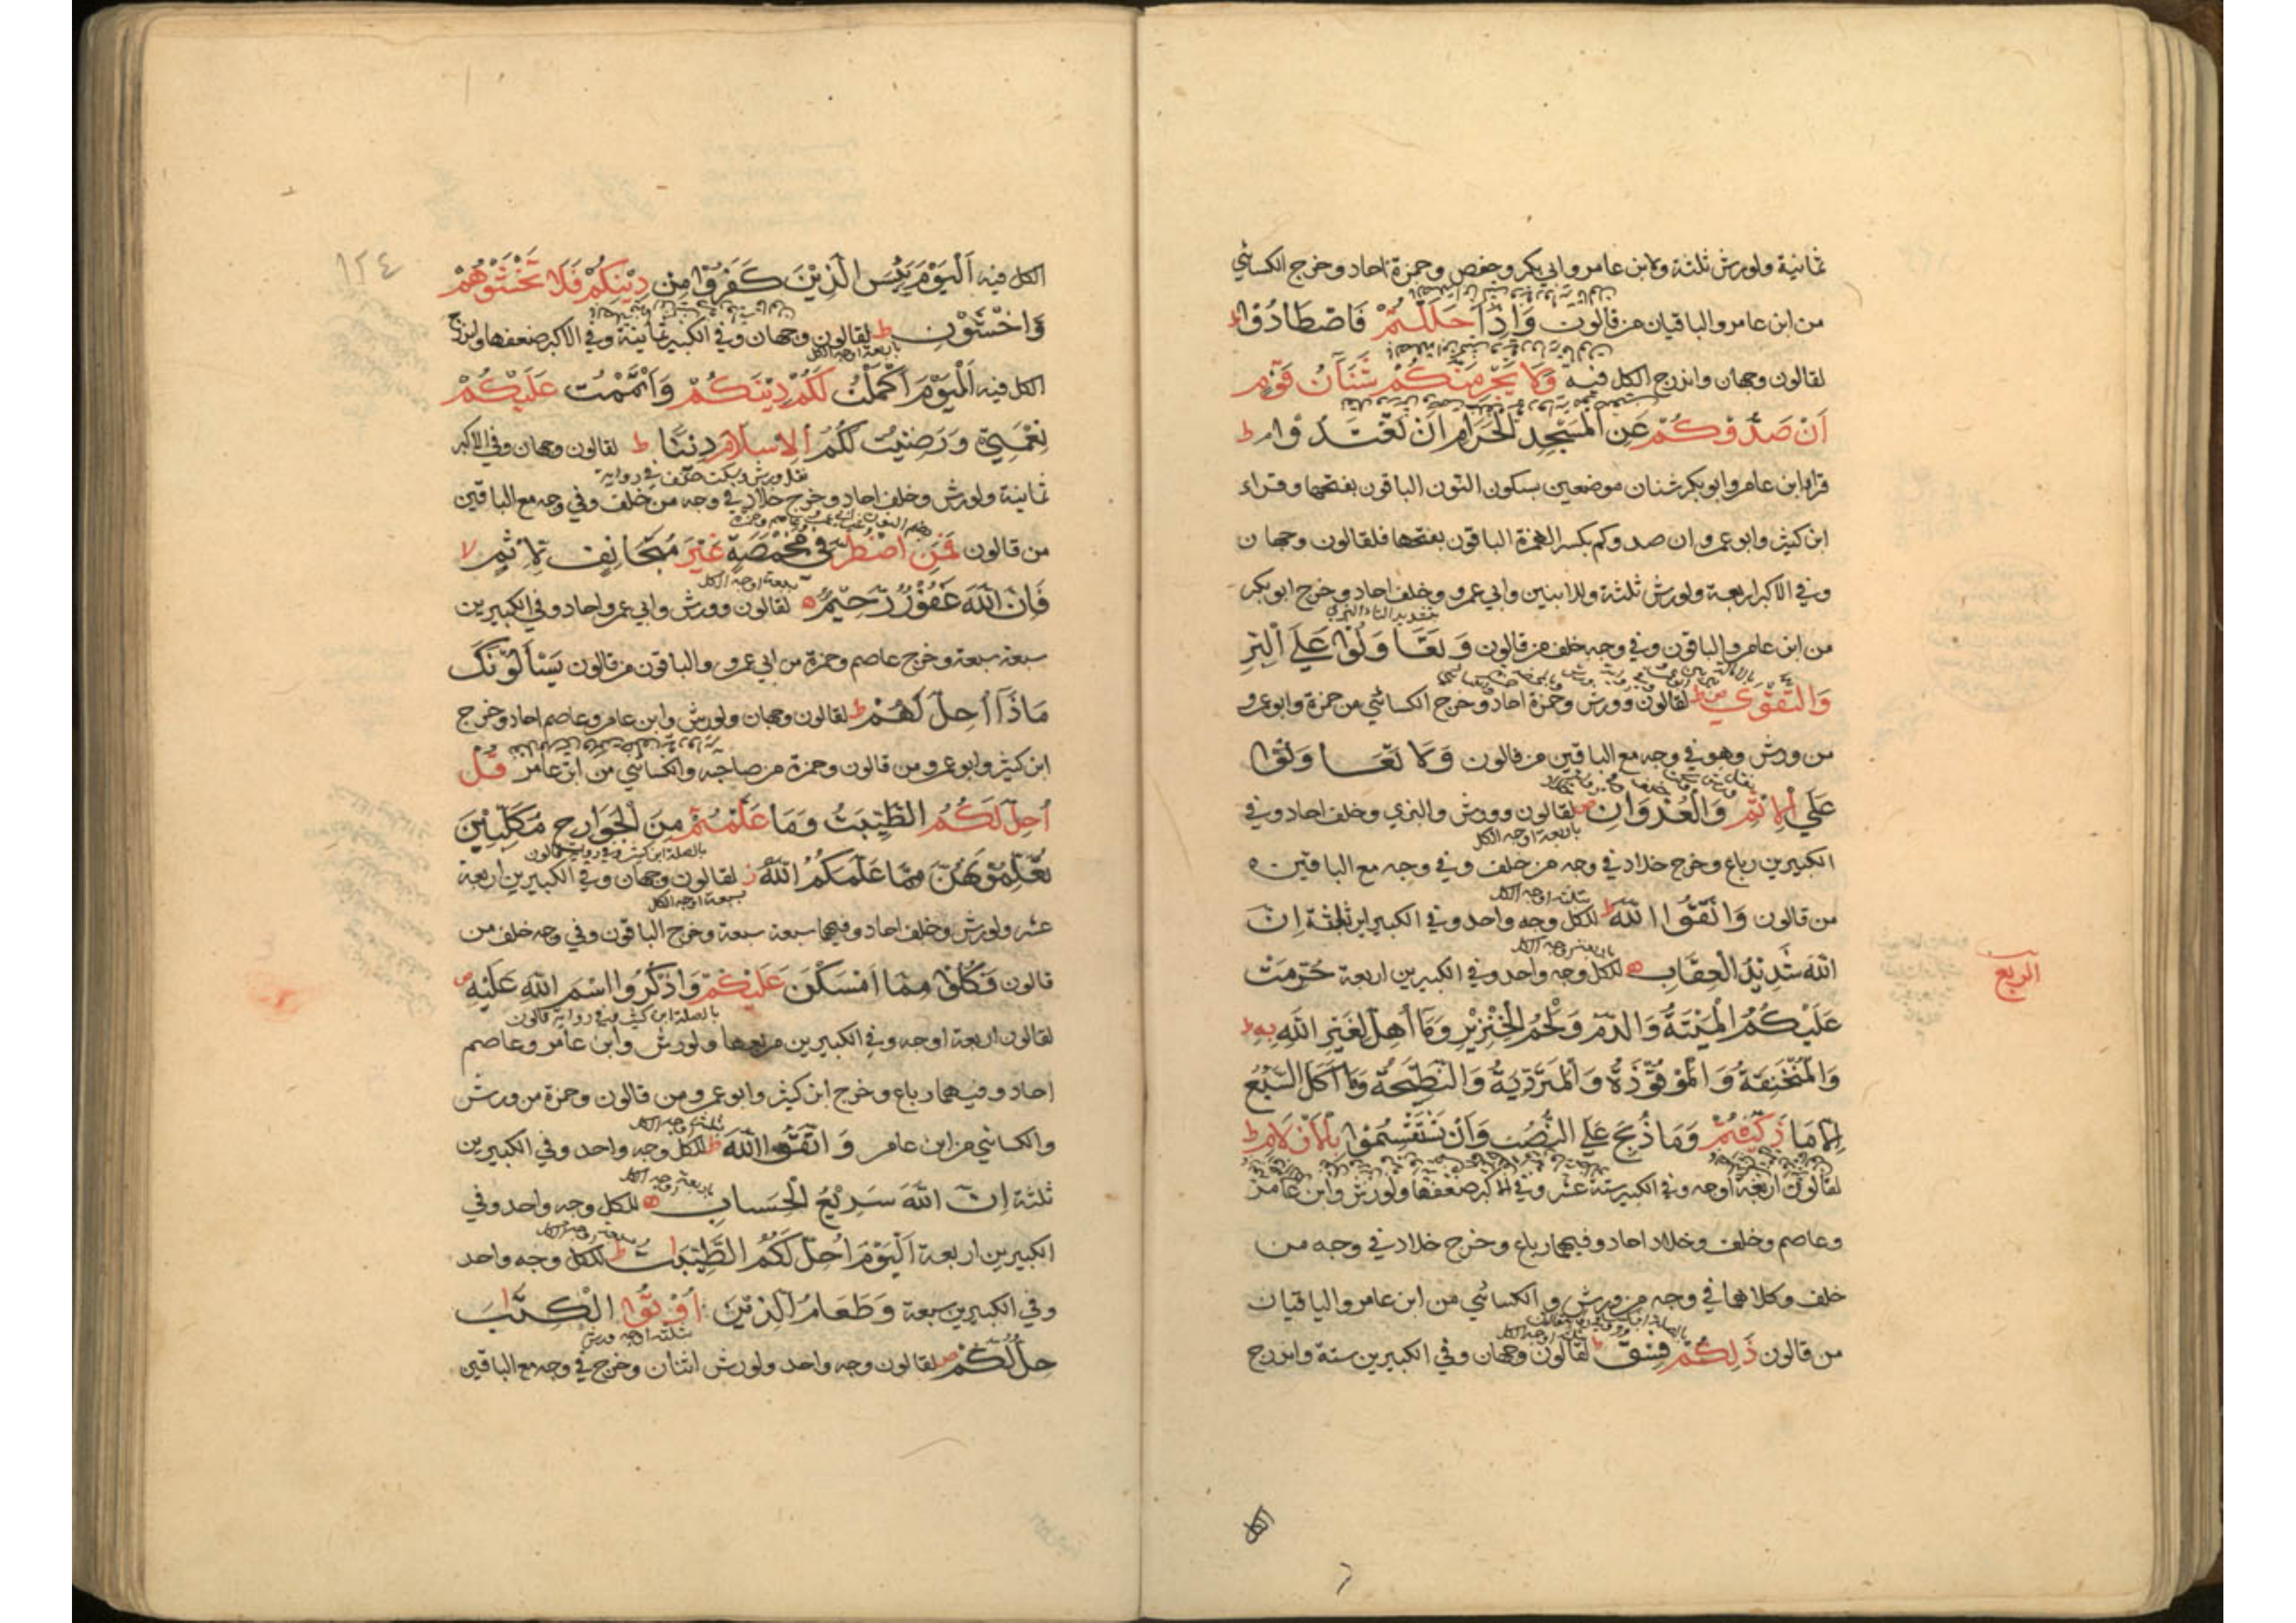 ثمانية ولورش ثلثة ولابن عامر وابي بكر وحفص وحمزة احاد وخرج الكسائي
من ابن عامر والباقيان من قالون وَاِذَا حَلَلْتُمْ فَاصْطَادُوْا ط
لقالون وجهان واندرج الكل فيه وَلَا يَجْرِمَنَّكُمْ شَنَآٰنُ قَوْمٍ
اَنْ صَدُّوْكُمْ عَنِ الْمَسْجِدِ الْحَرَامِ اَنْ تَعْتَدُوْا م ط
قرا ابن عامر وابو بكر شنان موضعين بسكون النون الباقون بفتحها وقراء
ابن كثير وابو عمرو ان صدوكم بكسر الهمزة الباقون بفتحها فلقالون وجهان
وفي الاكبر اربعة ولورش ثلثة وللابنين وابي عمرو وخلف احاد وخرج ابو بكر
بتشديد التاء البزي
من ابن عامر والباقون وفي وجه خلف من قالون وَتَعَاوَنُوْا عَلَي الْبِرِّ
وَالتَّقْوٰي ص ط لقالون وورش وحمزة احاد وخرج الكسائي من حمزة وابو عمرو
من ورش وهو في وجه مع الباقين من قالون وَلَا تَعَاوَنُوْا
عَلَي الْاِثْمِ وَالْعُدْوَانِ ص لقالون وورش والبزي وخلف احاد وفي
باربعة اوجه الكل
الكبيرين رباع وخرج خلاد في وجه من خلف وفي وجه مع الباقين
ثلثة اوجه الكل
من قالون وَاتَّقُوا اللّٰهَ ط للكل وجه واحد وفي الكبيرين ثلثة اِنَّ
باربعة اوجه الكل
اللّٰهَ شَدِيْدُ الْعِقَابِ للكل وجه واحد وفي الكبيرين اربعة حُرِّمَتْ
الربع
عَلَيْكُمُ الْمَيْتَةُ وَالدَّمُ وَلَحْمُ الْخِنْزِيْرِ وَمَا اُهِلَّ لِغَيْرِ اللّٰهِ بِهٖ ط
وَالْمُنْخَنِقَةُ وَالْمَوْقُوْذَةُ وَالْمُتَرَدِّيَةُ وَالنَّطِيْحَةُ وَمَا اَكَلَ السَّبُعُ
اِلَّا مَا ذَكَّيْتُمْ وَمَا ذُبِحَ عَلَي النُّصُبِ وَاَنْ تَسْتَقْسِمُوْا بِالْاَزْلَامِ ط
لقالون اربعة اوجه وفي الكبير ستة عشر وفي الاكبر ضعفها ولورش وابن عامر
وعاصم وخلف وخلاد احاد وفيهما رباع وخرج خلاد في وجه من
خلف وكلاهما في وجه من ورش والكسائي من ابن عامر والباقيان
من قالون ذٰلِكُمْ فِسْقٌ ط لقالون وجهان وفي الكبيرين ستة واندرج
الكل
١٢٤
الكل فيه اَلْيَوْمَ يَئِسَ الَّذِيْنَ كَفَرُوْا مِنْ دِيْنِكُمْ فَلَا تَخْشَوْهُمْ
وَاخْشَوْنِ ط لقالون وجهان وفي الكبير ثمانية وفي الاكبر ضعفها واندرج
باربعة اوجه الكل
الكل فيه اَلْيَوْمَ اَكْمَلْتُ لَكُمْ دِيْنَكُمْ وَاَتْمَمْتُ عَلَيْكُمْ
نِعْمَتِيْ وَرَضِيْتُ لَكُمُ الْاِسْلَامَ دِيْنًا ط لقالون وجهان وفي الاكبر
ثمانية ولورش وخلف احاد وخرج خلاد في وجه من خلف وفي وجه مع الباقين
من قالون فَمَنِ اضْطُرَّ فِي مَخْمَصَةٍ غَيْرَ مُتَجَانِفٍ لِاِثْمٍ لا
بسبعة اوجه الكل
فَاِنَّ اللّٰهَ غَفُوْرٌ رَّحِيْمٌ لقالون وورش وابي عمرو احاد وفي الكبيرين
سبعة سبعة وخرج عاصم وحمزة من ابي عمرو والباقون من قالون يَسْأَلُوْنَكَ
مَاذَا اُحِلَّ لَهُمْ ط لقالون وجهان ولورش وابن عامر وعاصم احاد وخرج
ابن كثير وابو عمرو من قالون وحمزة من صاحبه والكسائي من ابن عامر قُلْ
اُحِلَّ لَكُمُ الطَّيِّبٰتُ وَمَا عَلَّمْتُمْ مِنَ الْجَوَارِحِ مُكَلِّبِيْنَ
بالصلة ابن كثير وفي رواية قالون
تُعَلِّمُوْنَهُنَّ مِمَّا عَلَّمَكُمُ اللّٰهُ ز لقالون وجهان وفي الكبيرين اربعة
بسبعة اوجه الكل
عشر ولورش وخلف احاد وفيهما سبعة سبعة وخرج الباقون وفي وجه خلف من
قالون فَكُلُوْا مِمَّا اَمْسَكْنَ عَلَيْكُمْ وَاذْكُرُوا اسْمَ اللّٰهِ عَلَيْهِ ص
بالصلة ابن كثير وفي رواية قالون
لقالون اربعة اوجه وفي الكبيرين مربعها ولورش وابن عامر وعاصم
احاد وفيهما رباع وخرج ابن كثير وابو عمرو من قالون وحمزة من ورش
ثلثة اوجه الكل
والكسائي من ابن عامر وَاتَّقُوا اللّٰهَ ط للكل وجه واحد وفي الكبيرين
باربعة اوجه الكل
ثلثة اِنَّ اللّٰهَ سَرِيْعُ الْحِسَابِ للكل وجه واحد وفي
الكبيرين اربعة اَلْيَوْمَ اُحِلَّ لَكُمُ الطَّيِّبَاتُ ط للكل وجه واحد
وفي الكبيرين سبعة وَطَعَامُ الَّذِيْنَ اُوْتُوا الْكِتَابَ
ثلثة اوجه ورش
حِلٌّ لَكُمْ ص لقالون وجه واحد ولورش اثنان وخرج في وجه مع الباقين